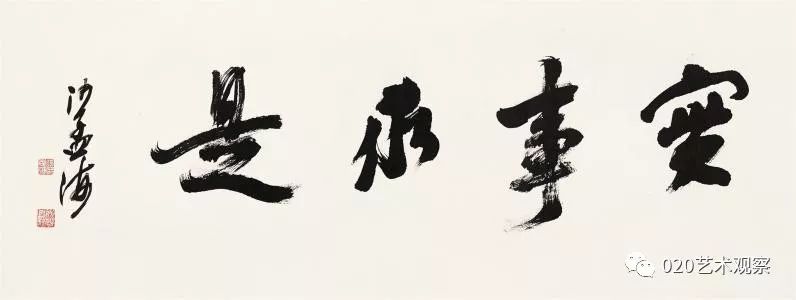 實事求是
沙孟海
020艺术观察